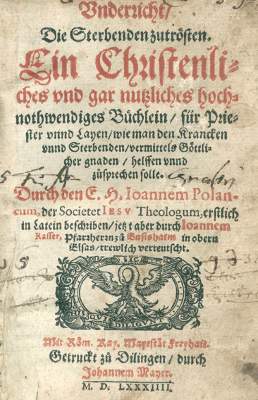 Vnderricht/
Die Sterbenden zutrösten.
Ein Christenli-
ches vnd gar nutzliches hoch-
nothwendiges Büchlein / für Prie-
ster vnnd Layen / wie man den Krancken
vnnd Sterbenden / vermittels Göttli-
cher gnaden / helffen vnnd
zůsprechen solle.
Durch den E. H. Ioannem Polan-
cum, der Societet IESV Theologum, erstlich
in Latein beschriben / jetzt aber durch Ioannem
Rasser, Pfarrherrn zů Ensishaim in obern
Elsas / trewlich verteutscht.
Mit Röm. Kay. Mayestät Freyhait.
Getruckt zů Dilingen / durch
Johannem Mayer.
M. D. LXXXIIII.